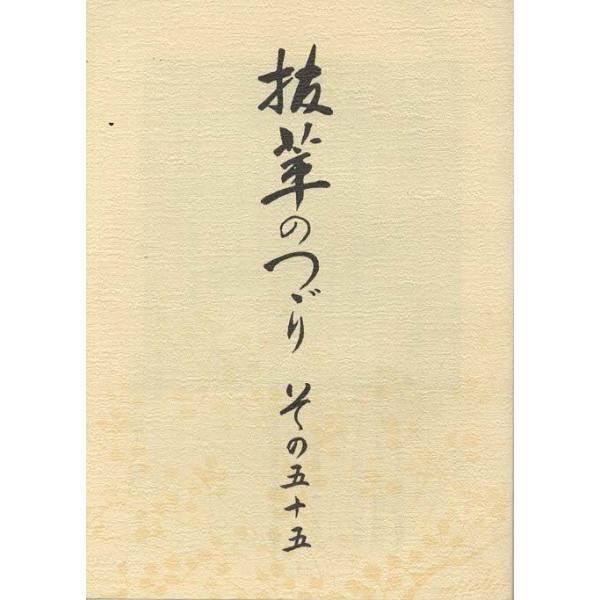 抜萃のつゞり その五十五